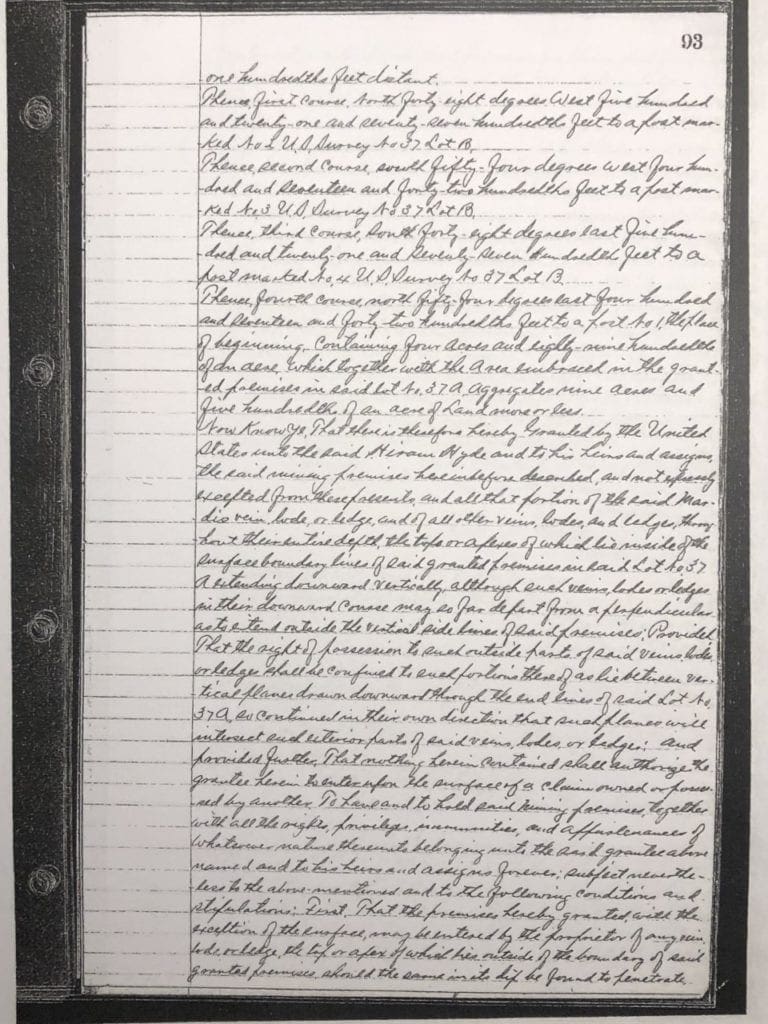 93
one hundredths feet distant.
Thence, first course, North forty-eight degrees West five hundred
and twenty-one and seventy-seven hundredths feet to a post mar-
ked No 2 U.S. Survey No 37 Lot B.
Thence, second course, south fifty-four degrees west four hun-
dred and seventeen and forty-two hundredths feet to a post mar-
ked No 3 U.S. Survey No 37 Lot B.
Thence, third course, south forty-eight degrees east five hun-
dred and twenty-one and seventy-seven hundredth feet to a
post marked No. 4 U.S. Survey No 37 Lot B.
Thence, fourth course, north fifty-four degrees east four hundred
and seventeen and forty two hundredths feet to a post No 1, the place
of beginning. Containing four acres and eighty-nine hundredths
of an acre, which together with the area embraced in the grant-
ed premises in said lot No. 37 A, aggregates nine acres and
five hundredths of an acre of Land more or less.
Now Know Ye, That there is therefore hereby Granted by the United
States unto the said Hiram Hyde and to his heirs and assigns,
the said mining premises hereinbefore described, and not expressly
excepted from these presents, and all that portion of the said Mar-
dis vein, lode, or ledge, and of all other veins, lodes, and ledges, throug-
hout their entire depth, the tops or apexes of which lie inside of the
surface boundary lines of said granted premises in said Lot No 37
A extending downward vertically, although such veins, lodes or ledges
in their downward course may so far depart from a perpendicular
as to extend outside the vertical side lines of said premises; Provided
That the right of possession to such outside parts of said veins, lodes
or ledges shall be confined to such portions thereof as lie between ver-
tical planes drawn downward through the end lines of said Lot No.
37A, so continued in their own direction that such planes will
intersect such exterior parts of said veins, lodes, or ledges; and
provided further, That nothing herein contained shall authorize the
grantee herein to enter upon the surface of a claim owned or posses-
sed by another. To have and to hold said mining premises, together
with all the rights, privileges, immunities, and appurtenances of
whatsoever nature thereunto belonging unto the said grantee above
named and to his heirs and assigns forever; subject neverthe-
less to the above-mentioned and to the following conditions and
stipulations: First, That the premises hereby granted, with the
exception of the surface, may be entered by the proprietor of any vein,
lode, or ledge, the top or apex of which lies outside of the boundary of said
granted premises, should the same in its dip be found to penetrate,